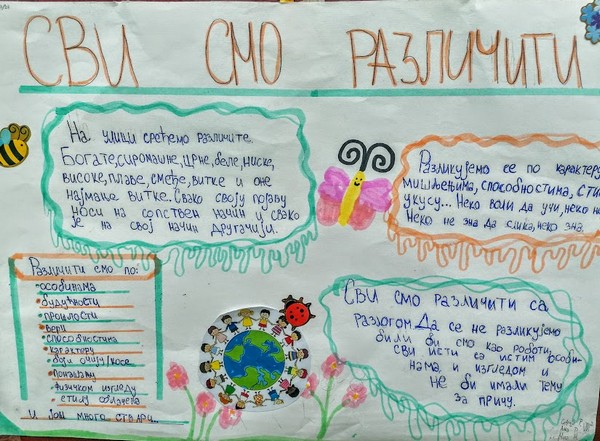 СВИ СМО РАЗЛИЧИТИ
На улици срећемо различите.
Богате, сиромашне, црне, беле, ниске,
високе, плаве, смеђе, витке и оне
најмање витке. Свако своју појаву
носи на сопствен начин и свако
је на свој начин другачији.
Разликујемо се по карактеру
мишљењима, способностима, сти
укусу... Неко воли да учи, неко не
Неко не зна да слика, неко зна.
Различити смо по:
•особинама
•будућности
•прошлости
•вери
•способностима
•карактеру
•боји очију/косе
•понашању
•физичком изгледу
•стилу облачења
и још много ствари..
Сви смо различити са
разлогом. Да се не разликујемо
били би смо као роботи,
сви исти са истим особи-
нама и изгледом и
не би имали тему
за причу.